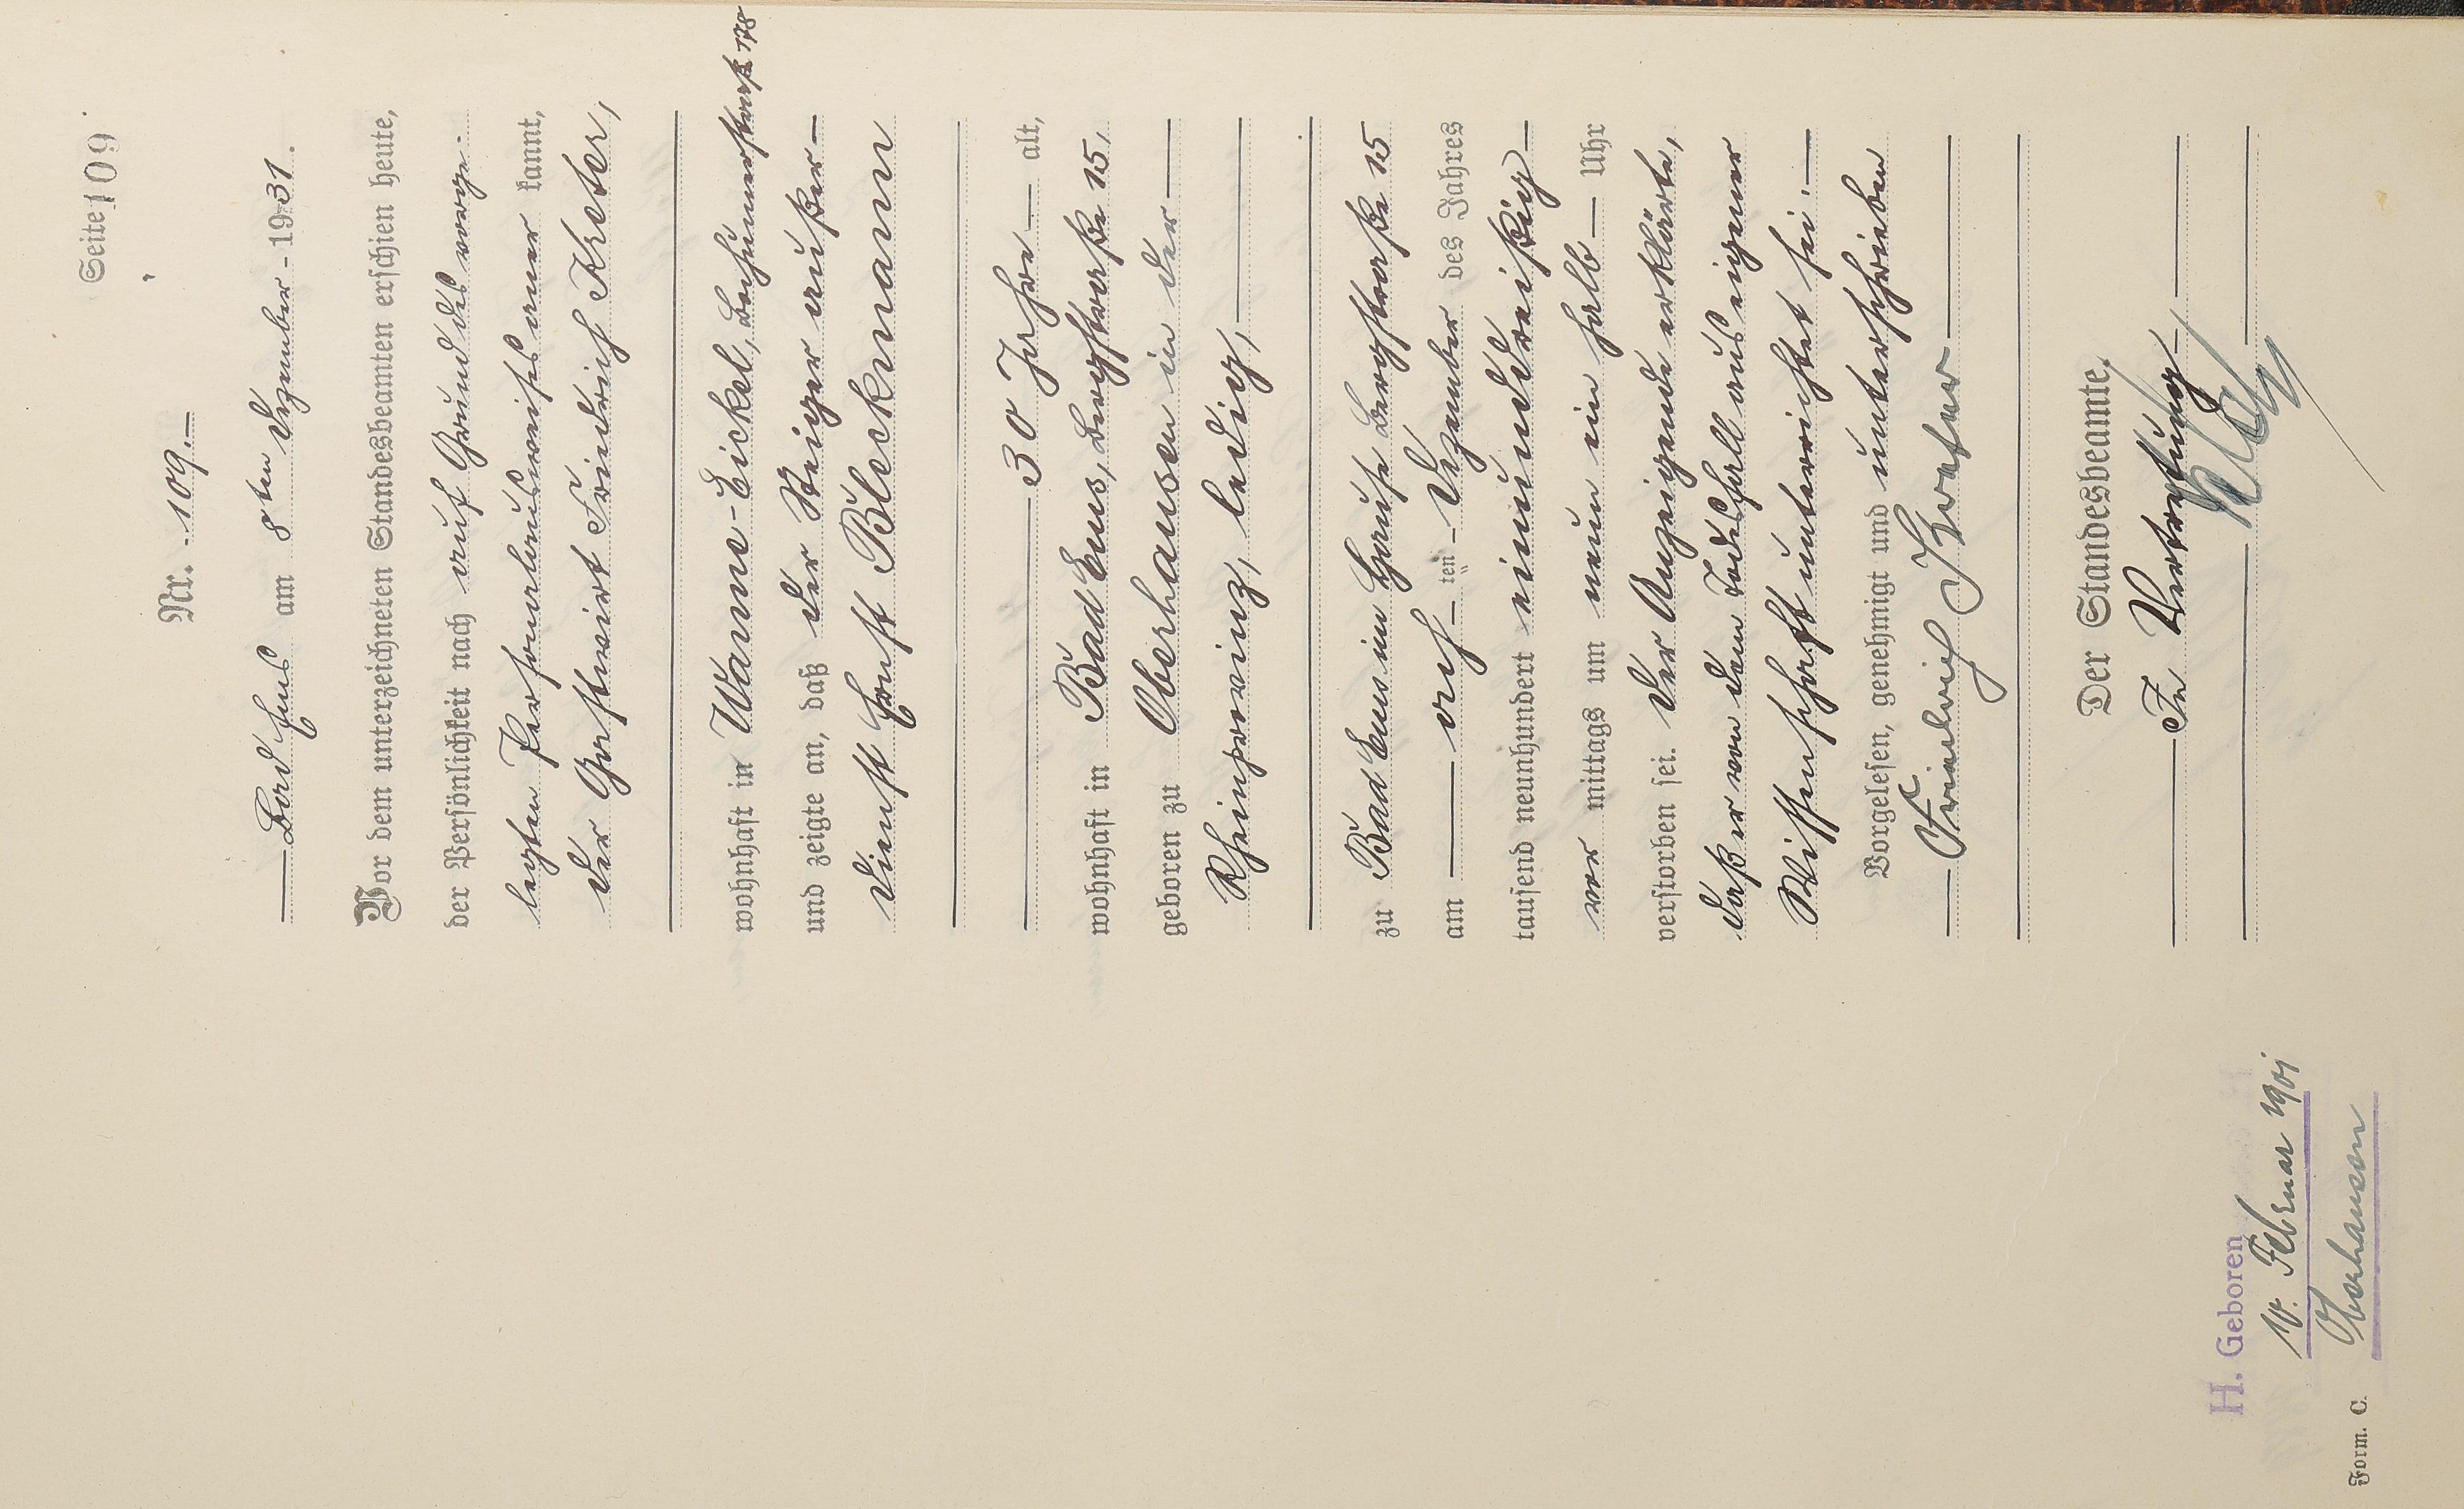 Seite 109
Nr. 109.
Bad Ems am 8ten Dezember 1931.
Vor dem unterzeichneten Standesbeamten erschien heute,
der Persönlichkeit nach auf Grund des vorge-
legten Personalausweises aner kannt,
der Gastwirt Friedrich Kreter,
wohnhaft in Wanne-Eickel, Bochumerstraße 178
und zeigte an, daß der Steiger außer
Dienst Ernst Bleckmann
30 Jahre alt,
wohnhaft in Bad Ems, Bergstraße 15,
geboren zu Oberhausen in der
Rheinprovinz, ledig,
zu Bad Ems im Hause Bergstraße 15
am acht ten Dezember des Jahres
tausend neunhundert einunddreißig
vor mittags um neun ein halb Uhr
verstorben sei. Der Anzeigende erklärte,
daß er von dem Todesfall aus eigener
Wissenschaft unterrichtet sei.
Vorgelesen, genehmigt und unterschrieben
Friedrich Kreter
Der Standesbeamte.
In Vertretung
H. Geboren
Februar 1901
Oberhausen
Form. C.